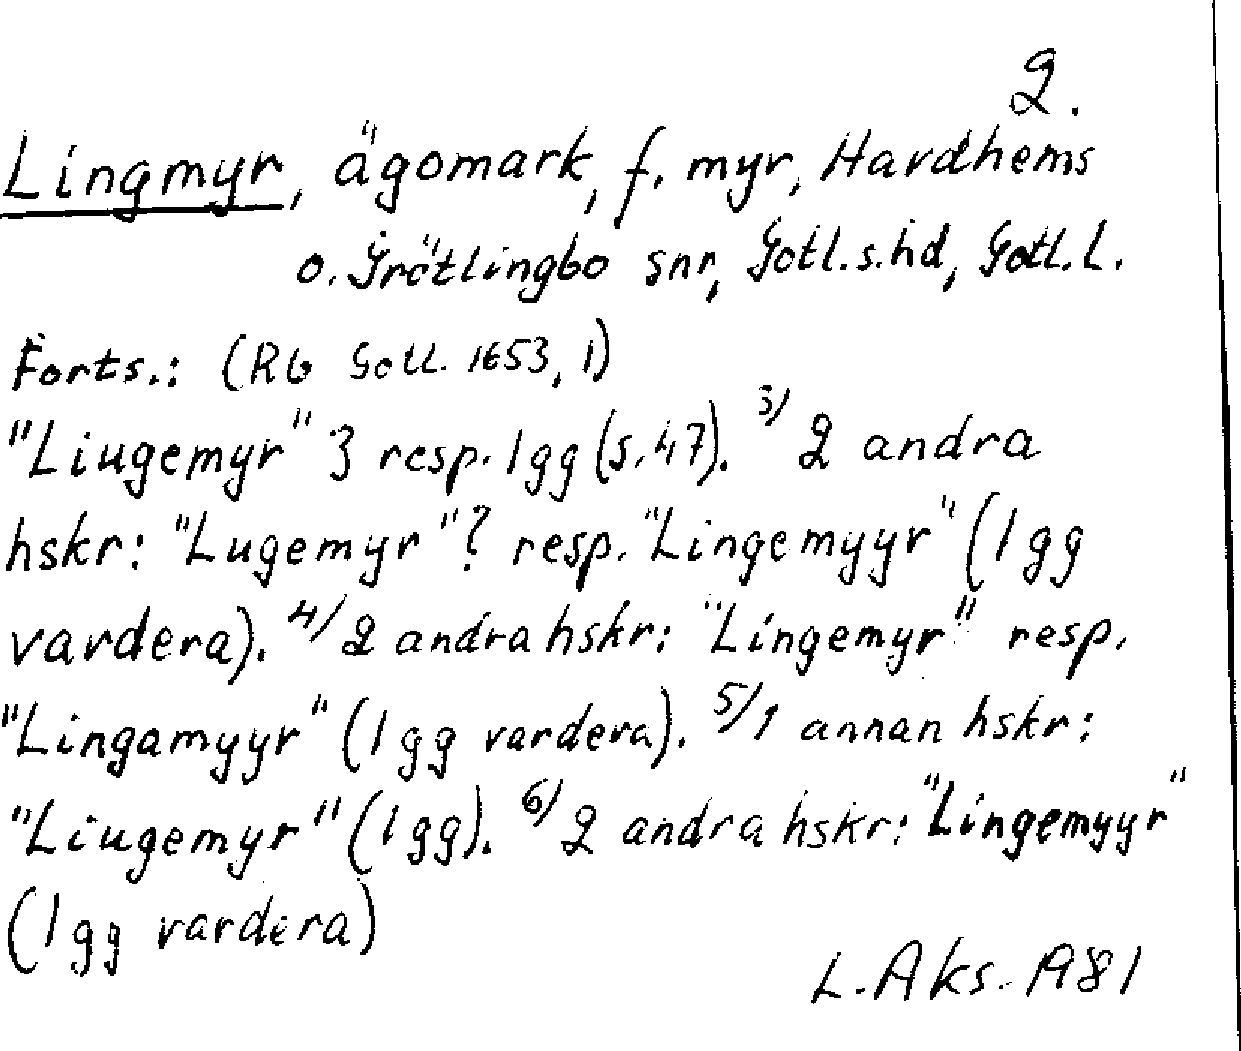 2.
Lingmyr, ägomark, f. myr, Havdhems
o. Grötlingbo snr, Gotl. s. hd, Gotl. l.
Forts.: (Rb Gotl. 1653, 1)
"Liugemyr" 3 resp. 1 gg (s. 47). 3/ 2 andra
hskr: "Lugemyr"? resp. "Lingemyyr" (1 gg
vardera). 4/ 2 andra hskr: "Lingemyr" resp.
"Lingamyyr" (1 gg vardera). 5/ 1 annan hskr:
"Liugemyr" (1 gg). 6/ 2 andra hskr: "Lingemyyr"
(1 gg vardera)
L. Aks. 1981